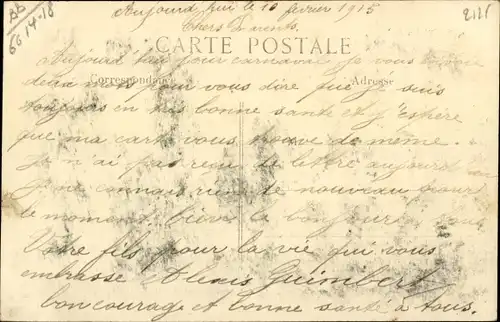 BB
66 14-18
2121
Aujourd hui le 16 févier 1915
Chers Parents.
CARTE POSTALE
Correspondance
Adresse
Aujourd hui jour carnaval je vous envoie
deux mots pour vous dire que je suis
toujours en très bonne sante et j'éspère
que ma carte vous trouve de même.
Je n'ai pas reçu de lettre aujourd
je ne connais rien de nouveau pour
le moment bien le bonjour a tous
Votre fils pour la vie qui vous
embrasse Alexis Guimbert
bon courage et bonne santé à tous.